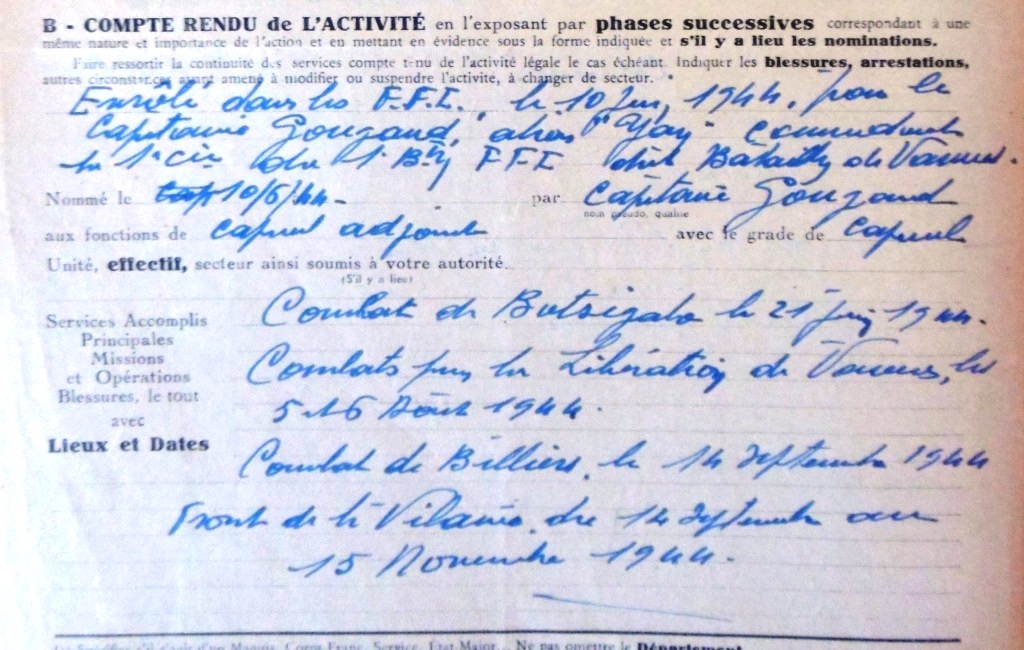 B - COMPTE RENDU de L'ACTIVITÉ en l'exposant par phases successives correspondant à une
même nature et importance de l'action et en mettant en évidence sous la forme indiquée et s'il y a lieu les nominations.
Faire ressortir la continuité des services compte tenu de l'activité légale le cas échéant. Indiquer les blessures, arrestations,
autres circonstances ayant amené à modifier ou suspendre l'activité, à changer de secteur.
Enrôlé dans les F.F.I. le 10 Juin 1944, par le
Capitaine Gougaud, alias "Yay" Commandant
la 1e cie du 1 Bn FFI dit Bataillon de Vannes.
Nommé le 10/6/44 - par Capitaine Gougaud
nom pseudo, qualité
aux fonctions de caporal adjoint avec le grade de Caporal
Unité, effectif, secteur ainsi soumis à votre autorité.
(S'il y a lieu)
Services Accomplis
Principales
Missions
et Opérations
Blessures, le tout
avec
Lieux et Dates
Combat de Botségalo le 21 juin 1944.
Combats pour la Libération de Vannes, les
5 et 6 Août 1944.
Combat de Billiers, le 14 Septembre 1944
Front de la Vilaine, du 14 Septembre au
15 Novembre 1944.
Ne pas omettre le Département